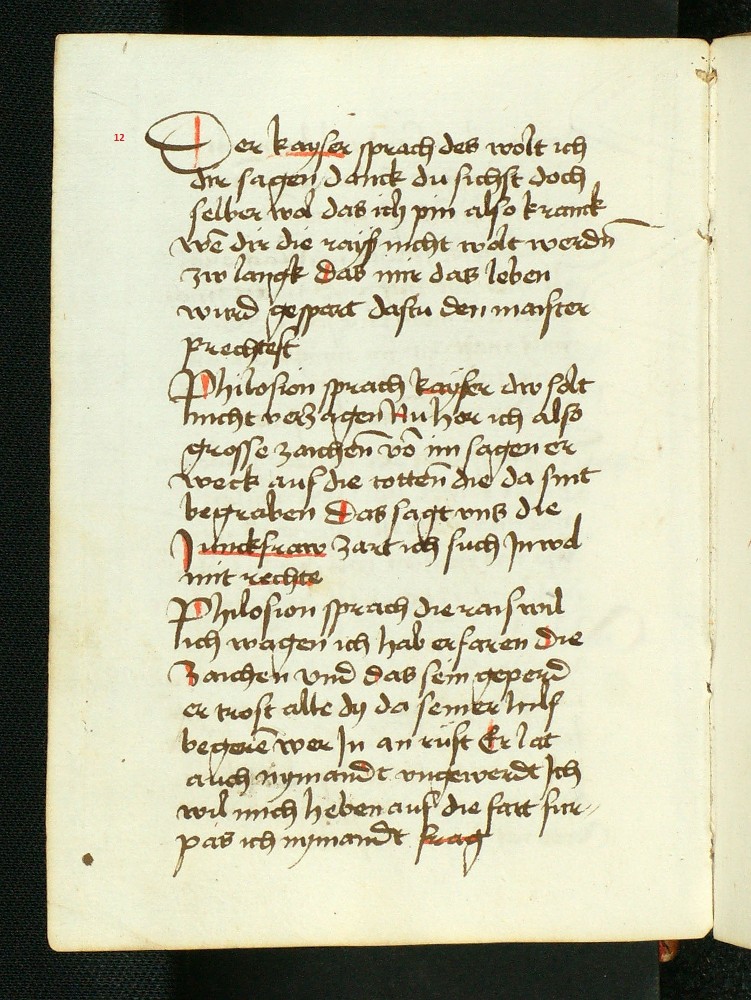 12
Der kayser sprach des wolt ich
dir sagen danck du sichst doch
selber wol das ich pin also kranck
wē dir die rayß nicht wolt werdn̄
zw langk Das mir das leben
wurd gespart dastu den maister
prechtest
Philosion sprach kayser dw solt
nicht verzagen Nu hor ich also
grosse zaichen̄ vō im sagen er
weck auf die totten̄ die da sint
begraben Das sagt vns die
Junckfraw zart ich such In wol
mit rechte
Philosion sprach die rais wil
ich wagen ich hab erfaren Die
Zaichen vnd das sein geperd
er trost alle dy da seiner hilf
begerē wer In an ruft Er lat
auch nymandt vngewerdt Ich
wil mich heben auf die fart fur〃
pas ich nymandt frag